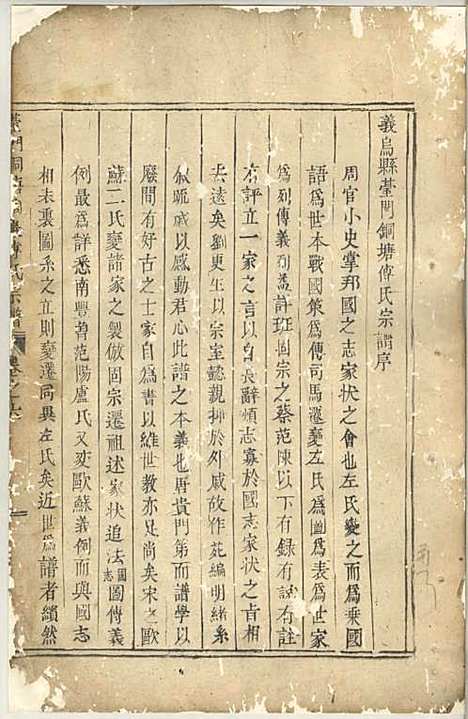 義烏縣墓門銅塘傅氏宗譜序
周官小史掌邦國之志家状之會也左氏變之而爲乗國
語爲世本戰國策爲傳司馬遷變左氏爲圖爲表爲世家
爲列傳義列益詳班固宗之蔡范陳以下有録有誌有註
有評立一家之言以自長辭煩志寡於國志家状之旨相
去遠矣劉更生以宗室懿親抑於外戚故作苑編明緒系
叙疏戚以感動君心此譜之本義也唐貴門第而譜學以
廢間有好古之士家自爲書以維世教亦足尚矣宋之歐
蘇二氏變諸家之製倣固宗遷祖述家状追法國志圖傳義
例最爲詳悉南豐曽范陽盧氏又変歐蘇義例而與國志
相表裏圖系之立則變遷同異左氏矣近世爲譜者纉然
銅塘 傅氏宗譜